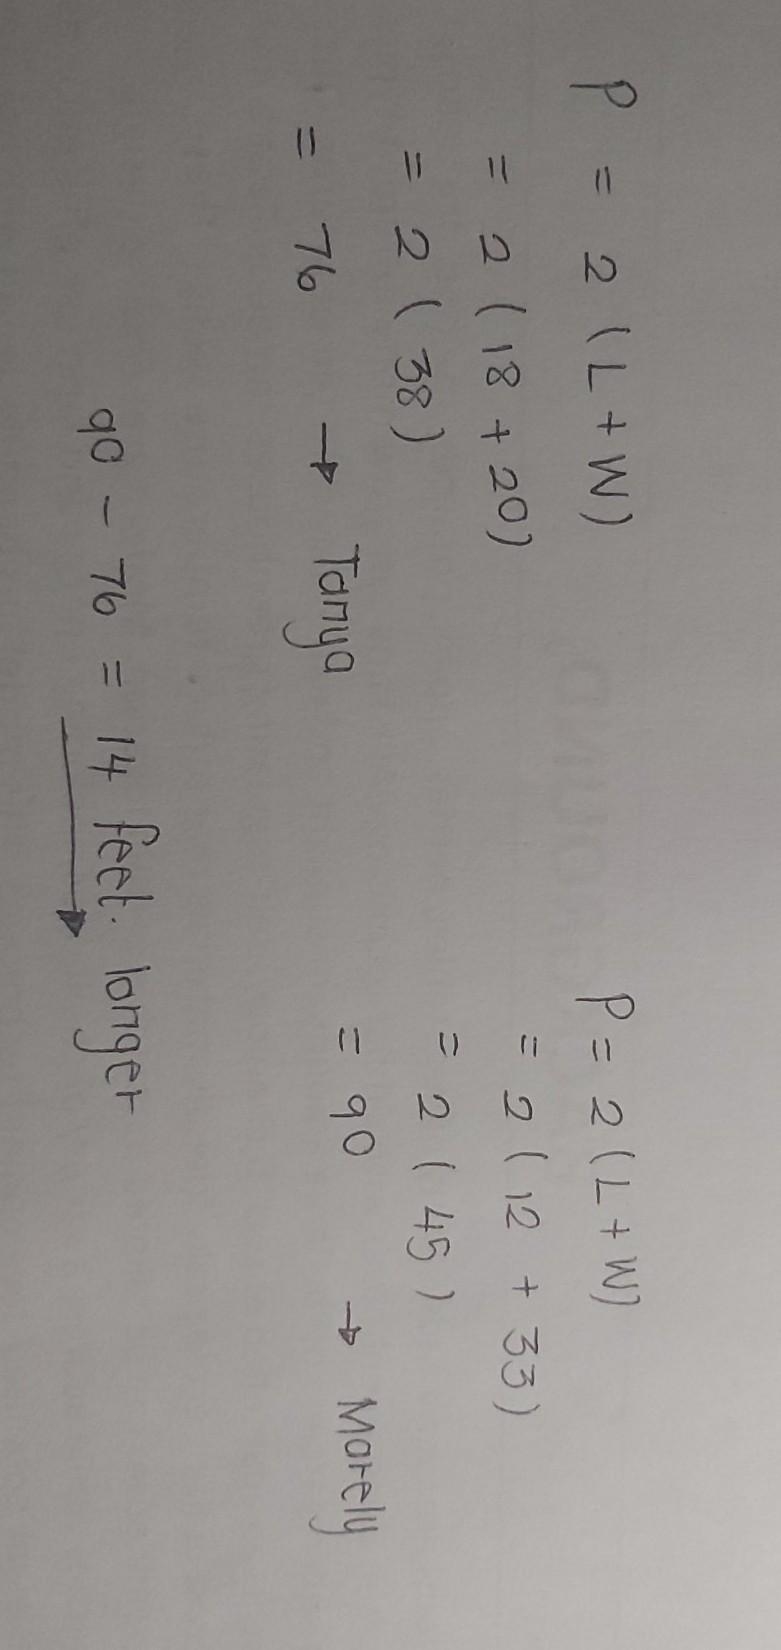 P = 2 (L + W)
= 2 (18 + 20)
= 2 (38)
= 76 → Tanya
P = 2 (L + W)
= 2 (12 + 33)
= 2 (45)
= 90 → Marely
90 - 76 = 14 feet. longer